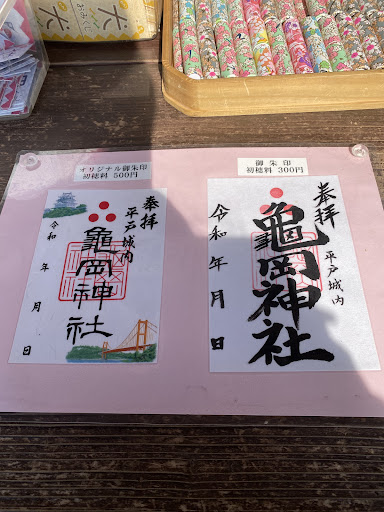 オリジナル御朱印
初穂料 500円
奉拝
平戸城内
亀岡神社
令和
年
月
日
御朱印
初穂料 300円
奉拝
平戸城内
亀岡神社
令和 年 月 日
犬